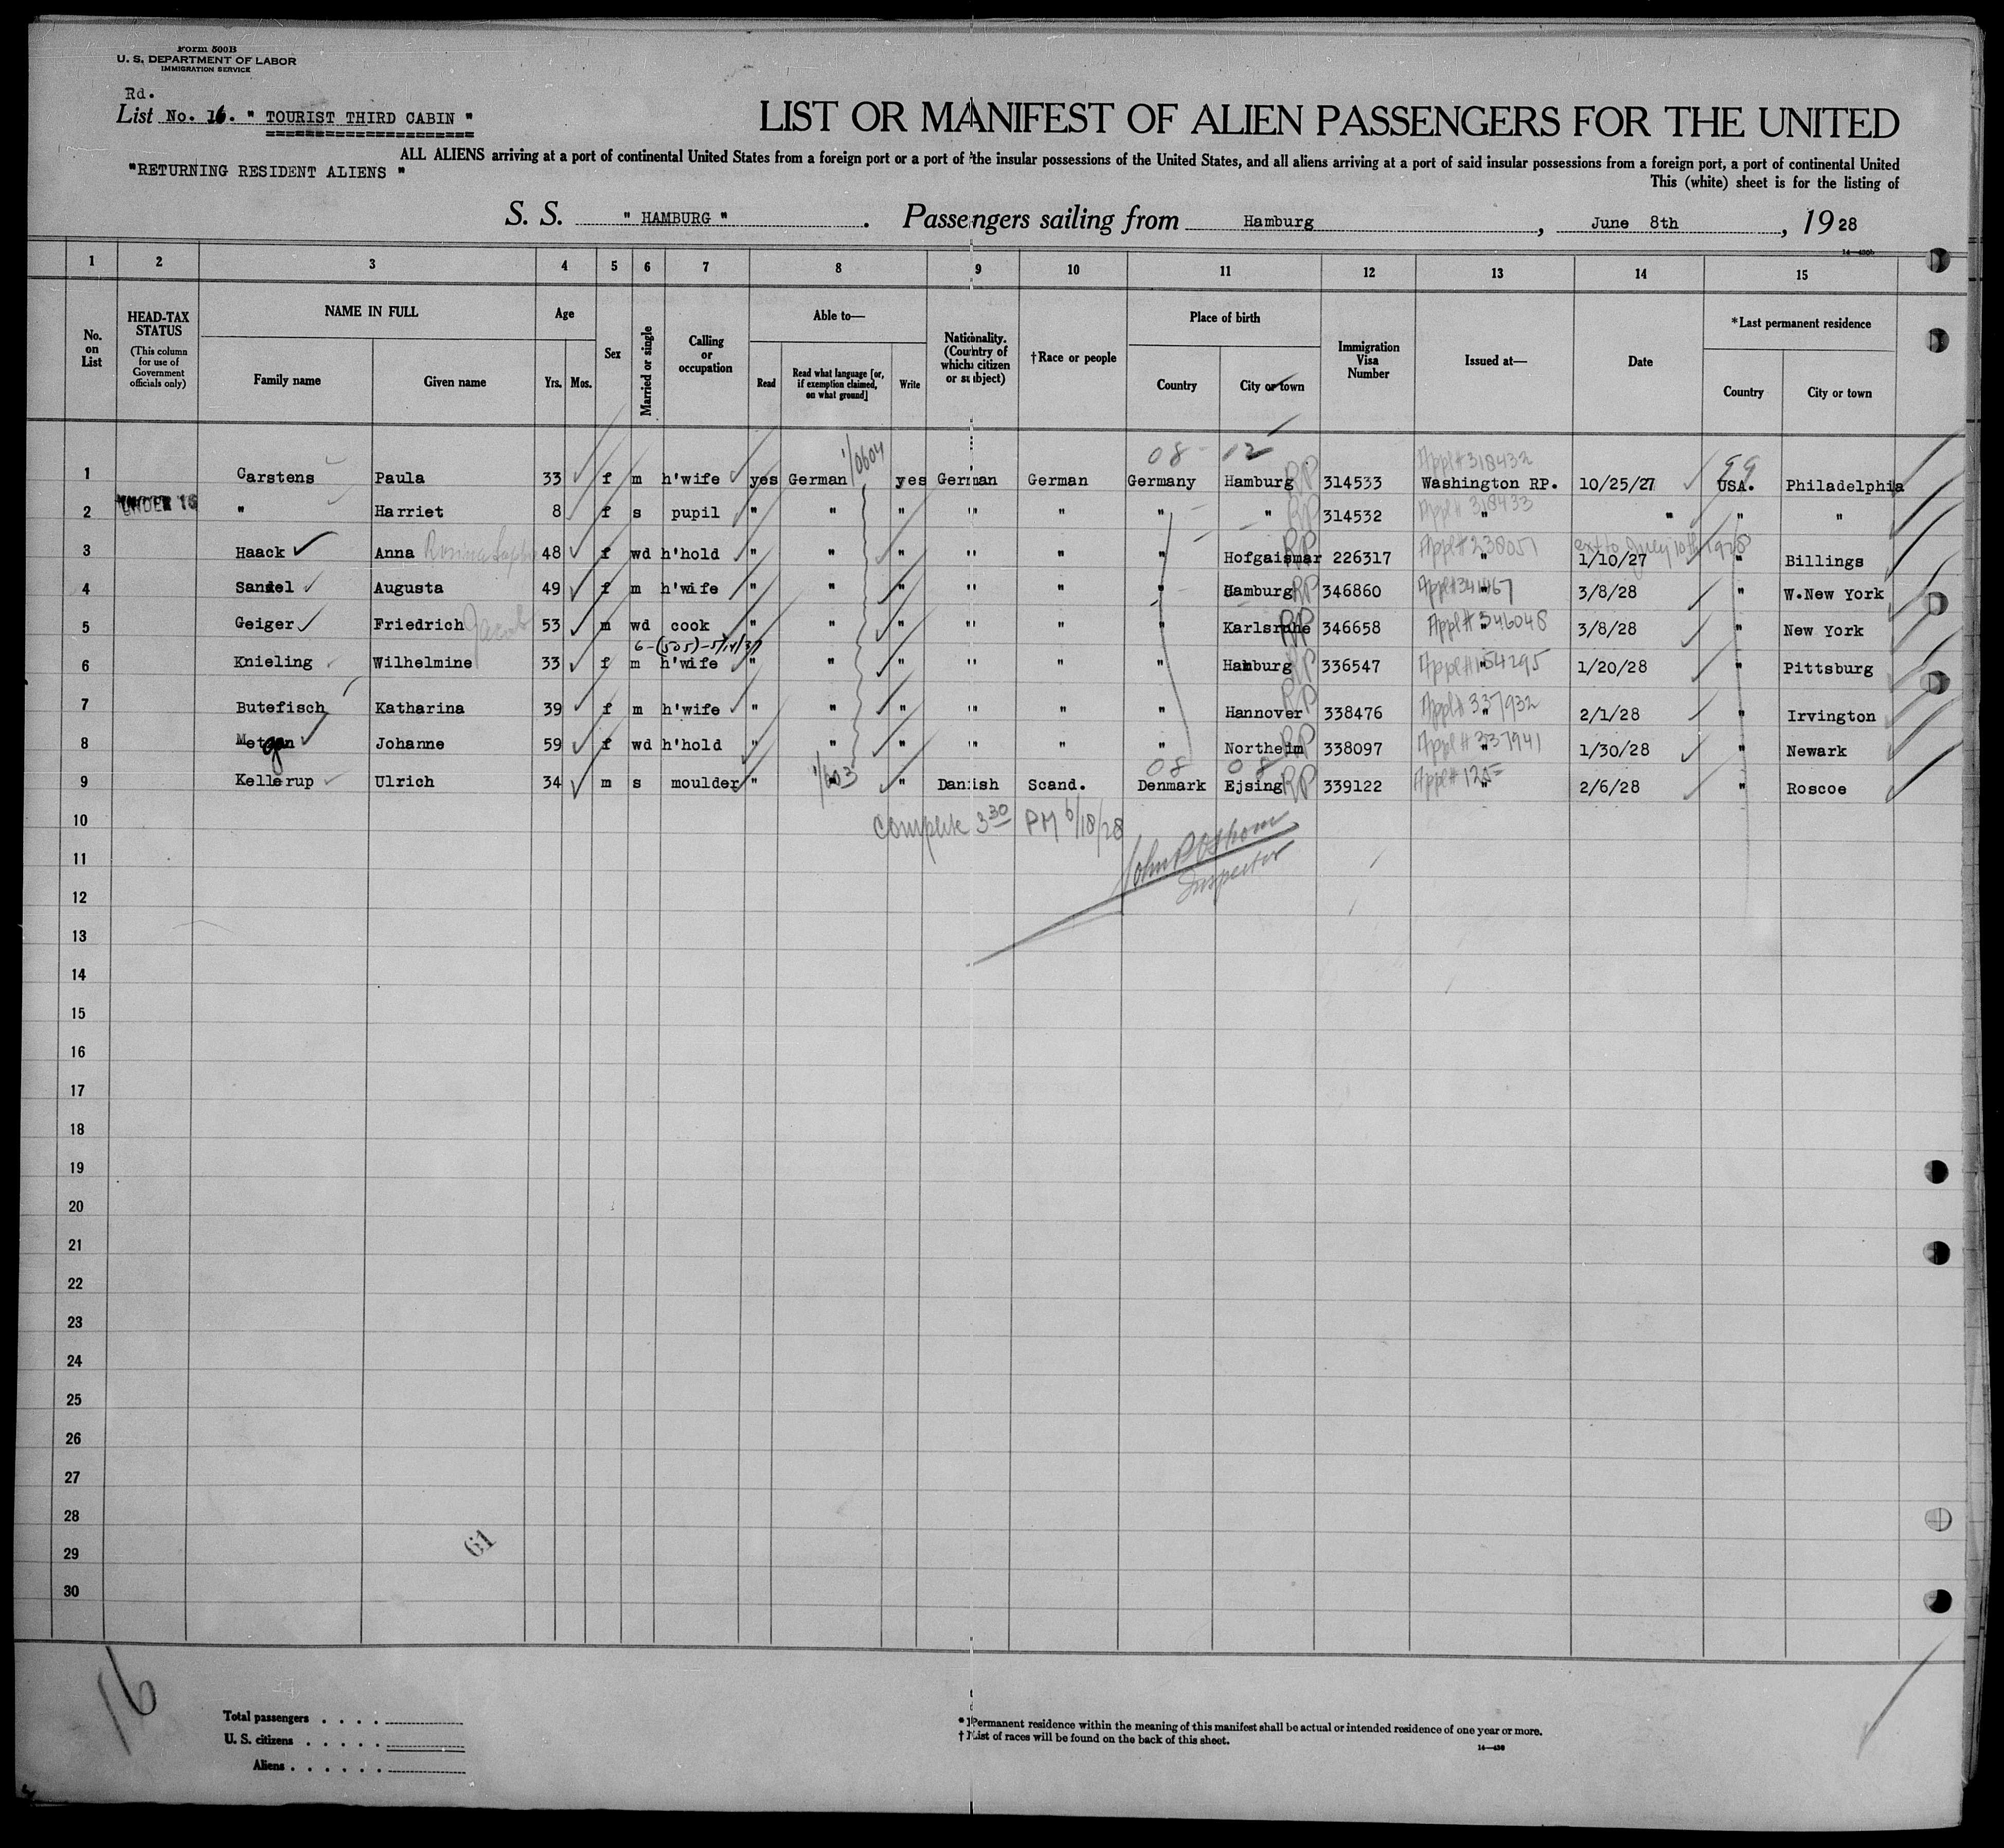 Form 500B
U. S. DEPARTMENT OF LABOR
IMMIGRATION SERVICE
Rd.
List No. 16. " TOURIST THIRD CABIN "
LIST OR MANIFEST OF ALIEN PASSENGERS FOR THE UNITED
ALL ALIENS arriving at a port of continental United States from a foreign port or a port of the insular possessions of the United States, and all aliens arriving at a port of said insular possessions from a foreign port, a port of continental United
"RETURNING RESIDENT ALIENS "
This (white) sheet is for the listing of
S. S. " HAMBURG " . Passengers sailing from Hamburg , June 8th , 19 28
14—430b
1 2 3 4 5 6 7 8 9 10 11 12 13 14 15
No. on List
HEAD-TAX STATUS (This column for use of Government officials only)
NAME IN FULL Family name Given name
Age Yrs. Mos.
Sex
Married or single
Calling or occupation
Able to— Read Read what language [or, if exemption claimed, on what ground] Write
Nationality. (Country of which citizen or subject)
†Race or people
Place of birth Country City or town
Immigration Visa Number
Issued at—
Date
*Last permanent residence Country City or town
1/0604 08 - 02 Appl# 318432 99
1 Carstens Paula 33 f m h'wife yes German yes German German Germany Hamburg RP 314533 Washington RP. 10/25/27 USA. Philadelphia
Appl# 318433
2 UNDER 16 " Harriet 8 f s pupil " " " " " " " RP 314532 " " " "
Appl# 238051 ext to July 10th 1928
3 Haack Anna Rosina 48 f wd h'hold " " " " " " Hofgaismar RP 226317 " 1/10/27 " Billings
4 Sandel Augusta 49 f m h'wife " " " " " " Hamburg RP 346860 " 3/8/28 " W.New York
5 Geiger Friedrich Jacob 53 m wd cook " " " " " " Karlsruhe RP 346658 Appl# 346048 " 3/8/28 " New York
6-(505)-5/14/31
6 Knieling Wilhelmine 33 f m h'wife " " " " " " Hamburg RP 336547 " 1/20/28 " Pittsburg
Appl# 337932
7 Butefisch Katharina 39 f m h'wife " " " " " " Hannover RP 338476 " 2/1/28 " Irvington
Appl# 337941
8 Johanne 59 f wd h'hold " " " " " " Northeim RP 338097 " 1/30/28 " Newark
08 08
9 Kellerup Ulrich 34 m s moulder " " " Danish Scand. Denmark Ejsing RP 339122 " 2/6/28 " Roscoe
10 Complete 3 30 PM 6/18/28
11
Inspector
12
13
14
15
16
17
18
19
20
21
22
23
24
25
26
27
28
29
61
30
16
Total passengers . . . .
U. S. citizens . . . . .
Aliens . . . . . .
* Permanent residence within the meaning of this manifest shall be actual or intended residence of one year or more.
† List of races will be found on the back of this sheet.
14—430